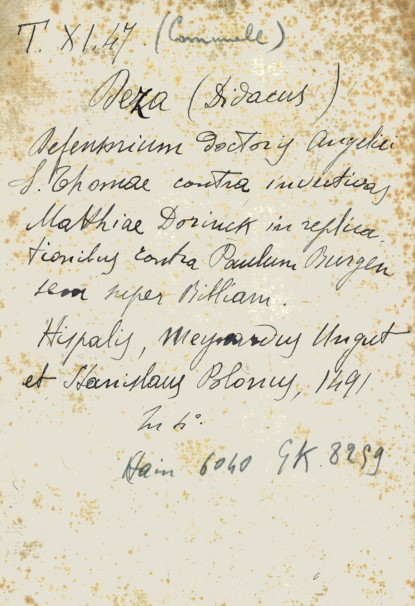 T. XI.47 (Comunale)
Deza (Didacus)
Defensorium Doctoris Angelici
S. Thomae contra invectivas
Mathiae Dorinck in replica
tionibus contra Paulum Burgen
sem super Bibliam.
Hispalis, Meynardus Ungut
et Stanislaus Polonus, 1491
In 4°.
Hain 6040 GK 8259